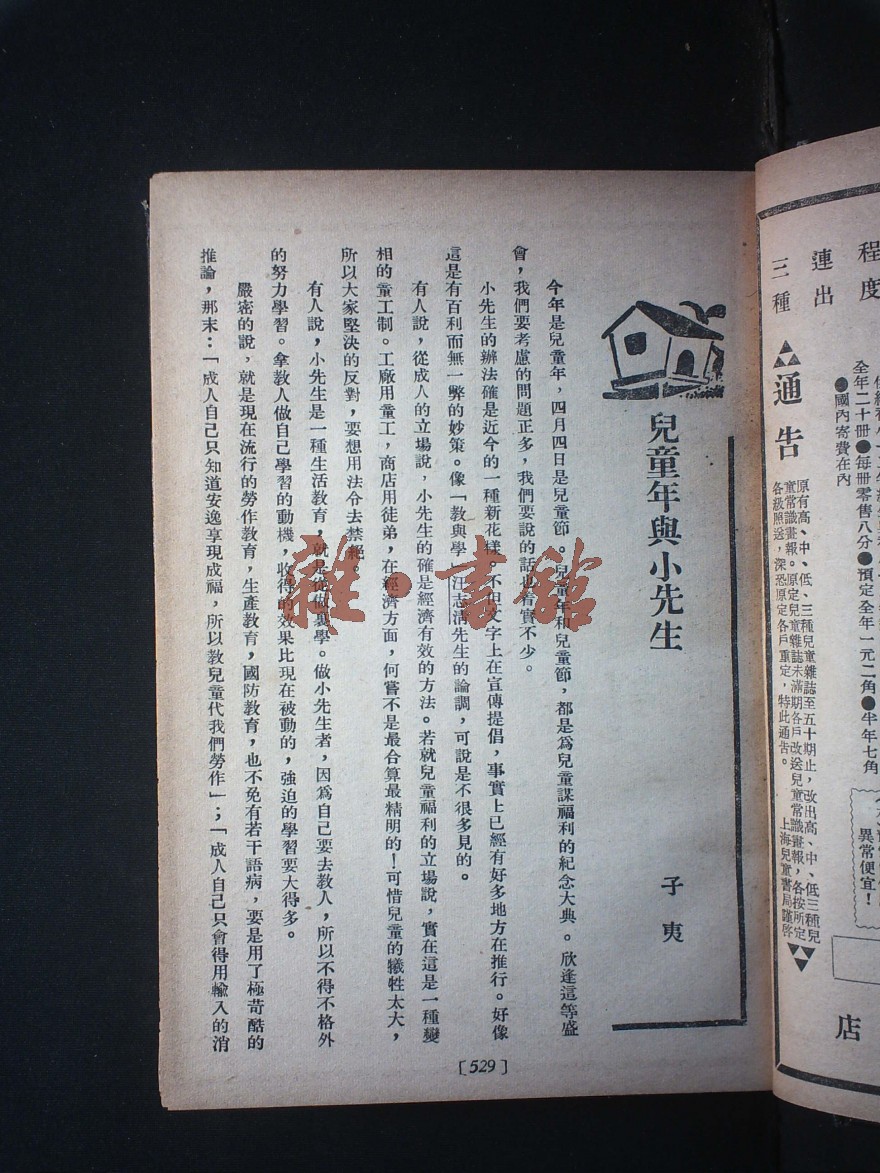 兒童年與小先生
子夷
今年是兒童年，四月四日是兒童節。兒童年和兒童節，都是爲兒童謀福利的紀念大典。欣逢這等盛
會，我們要考慮的問題正多，我們要說的話也着實不少。
小先生的辦法確是近今的一種新花樣。不但文字上在宣傳提倡，事實上已經有好多地方在推行。好像
這是有百利而無一弊的妙策。像「教與學」汪志清先生的論調，可說是不很多見的。
有人說，從成人的立場說，小先生的確是經濟有效的方法。若就兒童福利的立場說，實在這是一種變
相的童工制。工廠用童工，商店用徒弟，在經濟方面，何嘗不是最合算最精明的！可惜兒童的犧牲太大，
所以大家堅決的反對，要想用法令去禁絕。
有人說，小先生是一種生活教育，就是從做裏學。做小先生者，因爲自己要去教人，所以不得不格外
的努力學習。拿教人做自己學習的動機，收得的效果比現在被動的，強迫的學習要大得多。
嚴密的說，就是現在流行的勞作教育，生產教育，國防教育，也不免有若干語病，要是用了極苛酷的
推論，那末：「成人自己只知道安逸享現成福，所以教兒童代我們勞作」；「成人自己只會得用輸入的消
[529]
雜·書館
程度
連出
三種
通告
原有高、中、低、三種兒童雜誌至五十期止，改出高、中、低三種兒
童常識畫報。原定兒童雜誌未滿期各戶改送兒童常識畫報，各按所定
各級照送，深恐原定各戶重定，特此通告。 上海兒童書局謹啓
全年二十冊●每冊零售八分●預定全年一元二角●半年七角
●國內寄費在內
異常便宜！
店